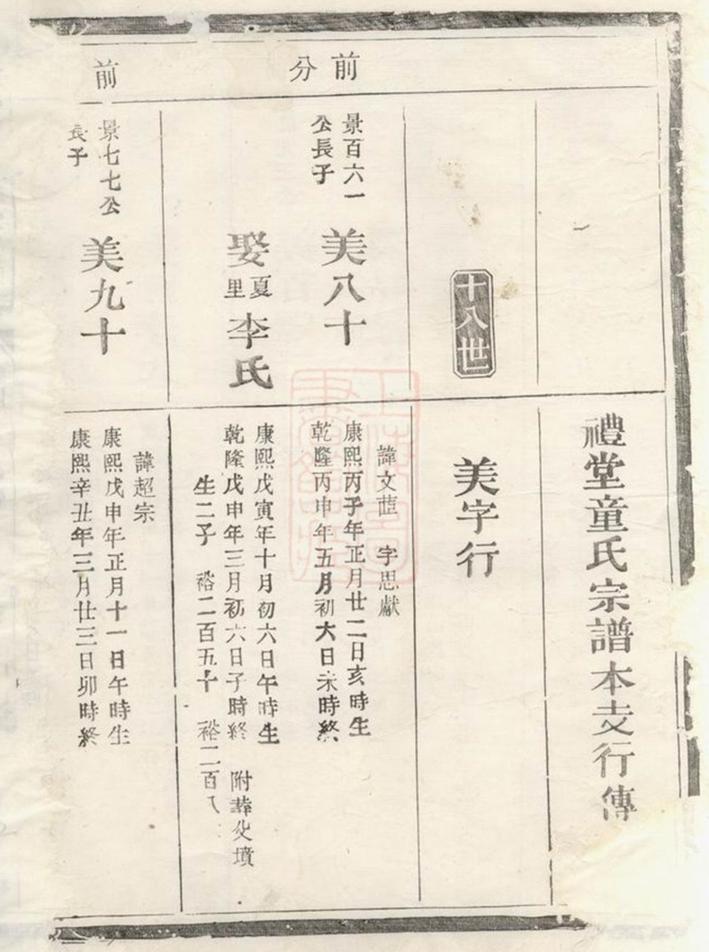 禮堂童氏宗譜本支行傳
十八世
美字行
前分
景百六一
公長子
美八十
諱文 字思獻
康熙丙子年正月廿二日亥時生
乾隆丙申年五月初六日未時終
娶夏里李氏
康熙戊寅年十月初六日午時生
乾隆戊申年三月初六日子時終 附葬父墳
生二子 裕二百五十 裕二百八
前
景七七公
長子
美九十
諱超宗
康熙戊申年正月十一日午時生
康熙辛丑年三月廿三日卯時終